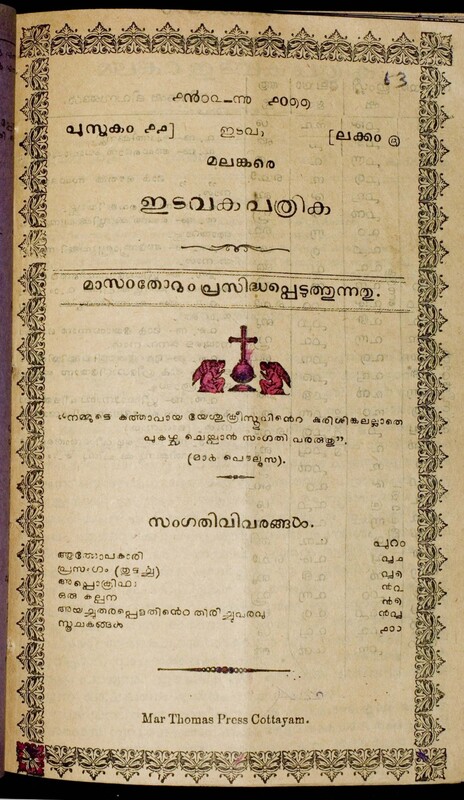 63
൧൯൦൨-നു ൧൦൭൭
പുസ്തകം ൧൧] ഇടവം [ലക്കം ൫
മലങ്കരെ
ഇടവക പത്രിക
മാസംതോറും പ്രസിദ്ധപ്പെടുത്തുന്നതു.
“നമ്മുടെ കൎത്താവായ യേശുക്രിസ്തുവിൻെറ കുരിശിങ്കലല്ലാതെ
പുകഴ്ച ചെയ്വാൻ സംഗതി വരരുതു”.
(മാർ പൌലൂസ).
സംഗതിവിവരങ്ങൾ.
പുറം
ആത്മോപകാരി ൮൧
പ്രസംഗം (തുടൎച്ച) ൮൭
അപ്പൊക്രിഫാ
ഒരു കല്പന
അയച്ചുതരപ്പെട്ടതിൻെറ തിരിച്ചുവരവു ൯൮
സൂചകങ്ങൾ ൧൦൦
Mar Thomas Press Cottayam.